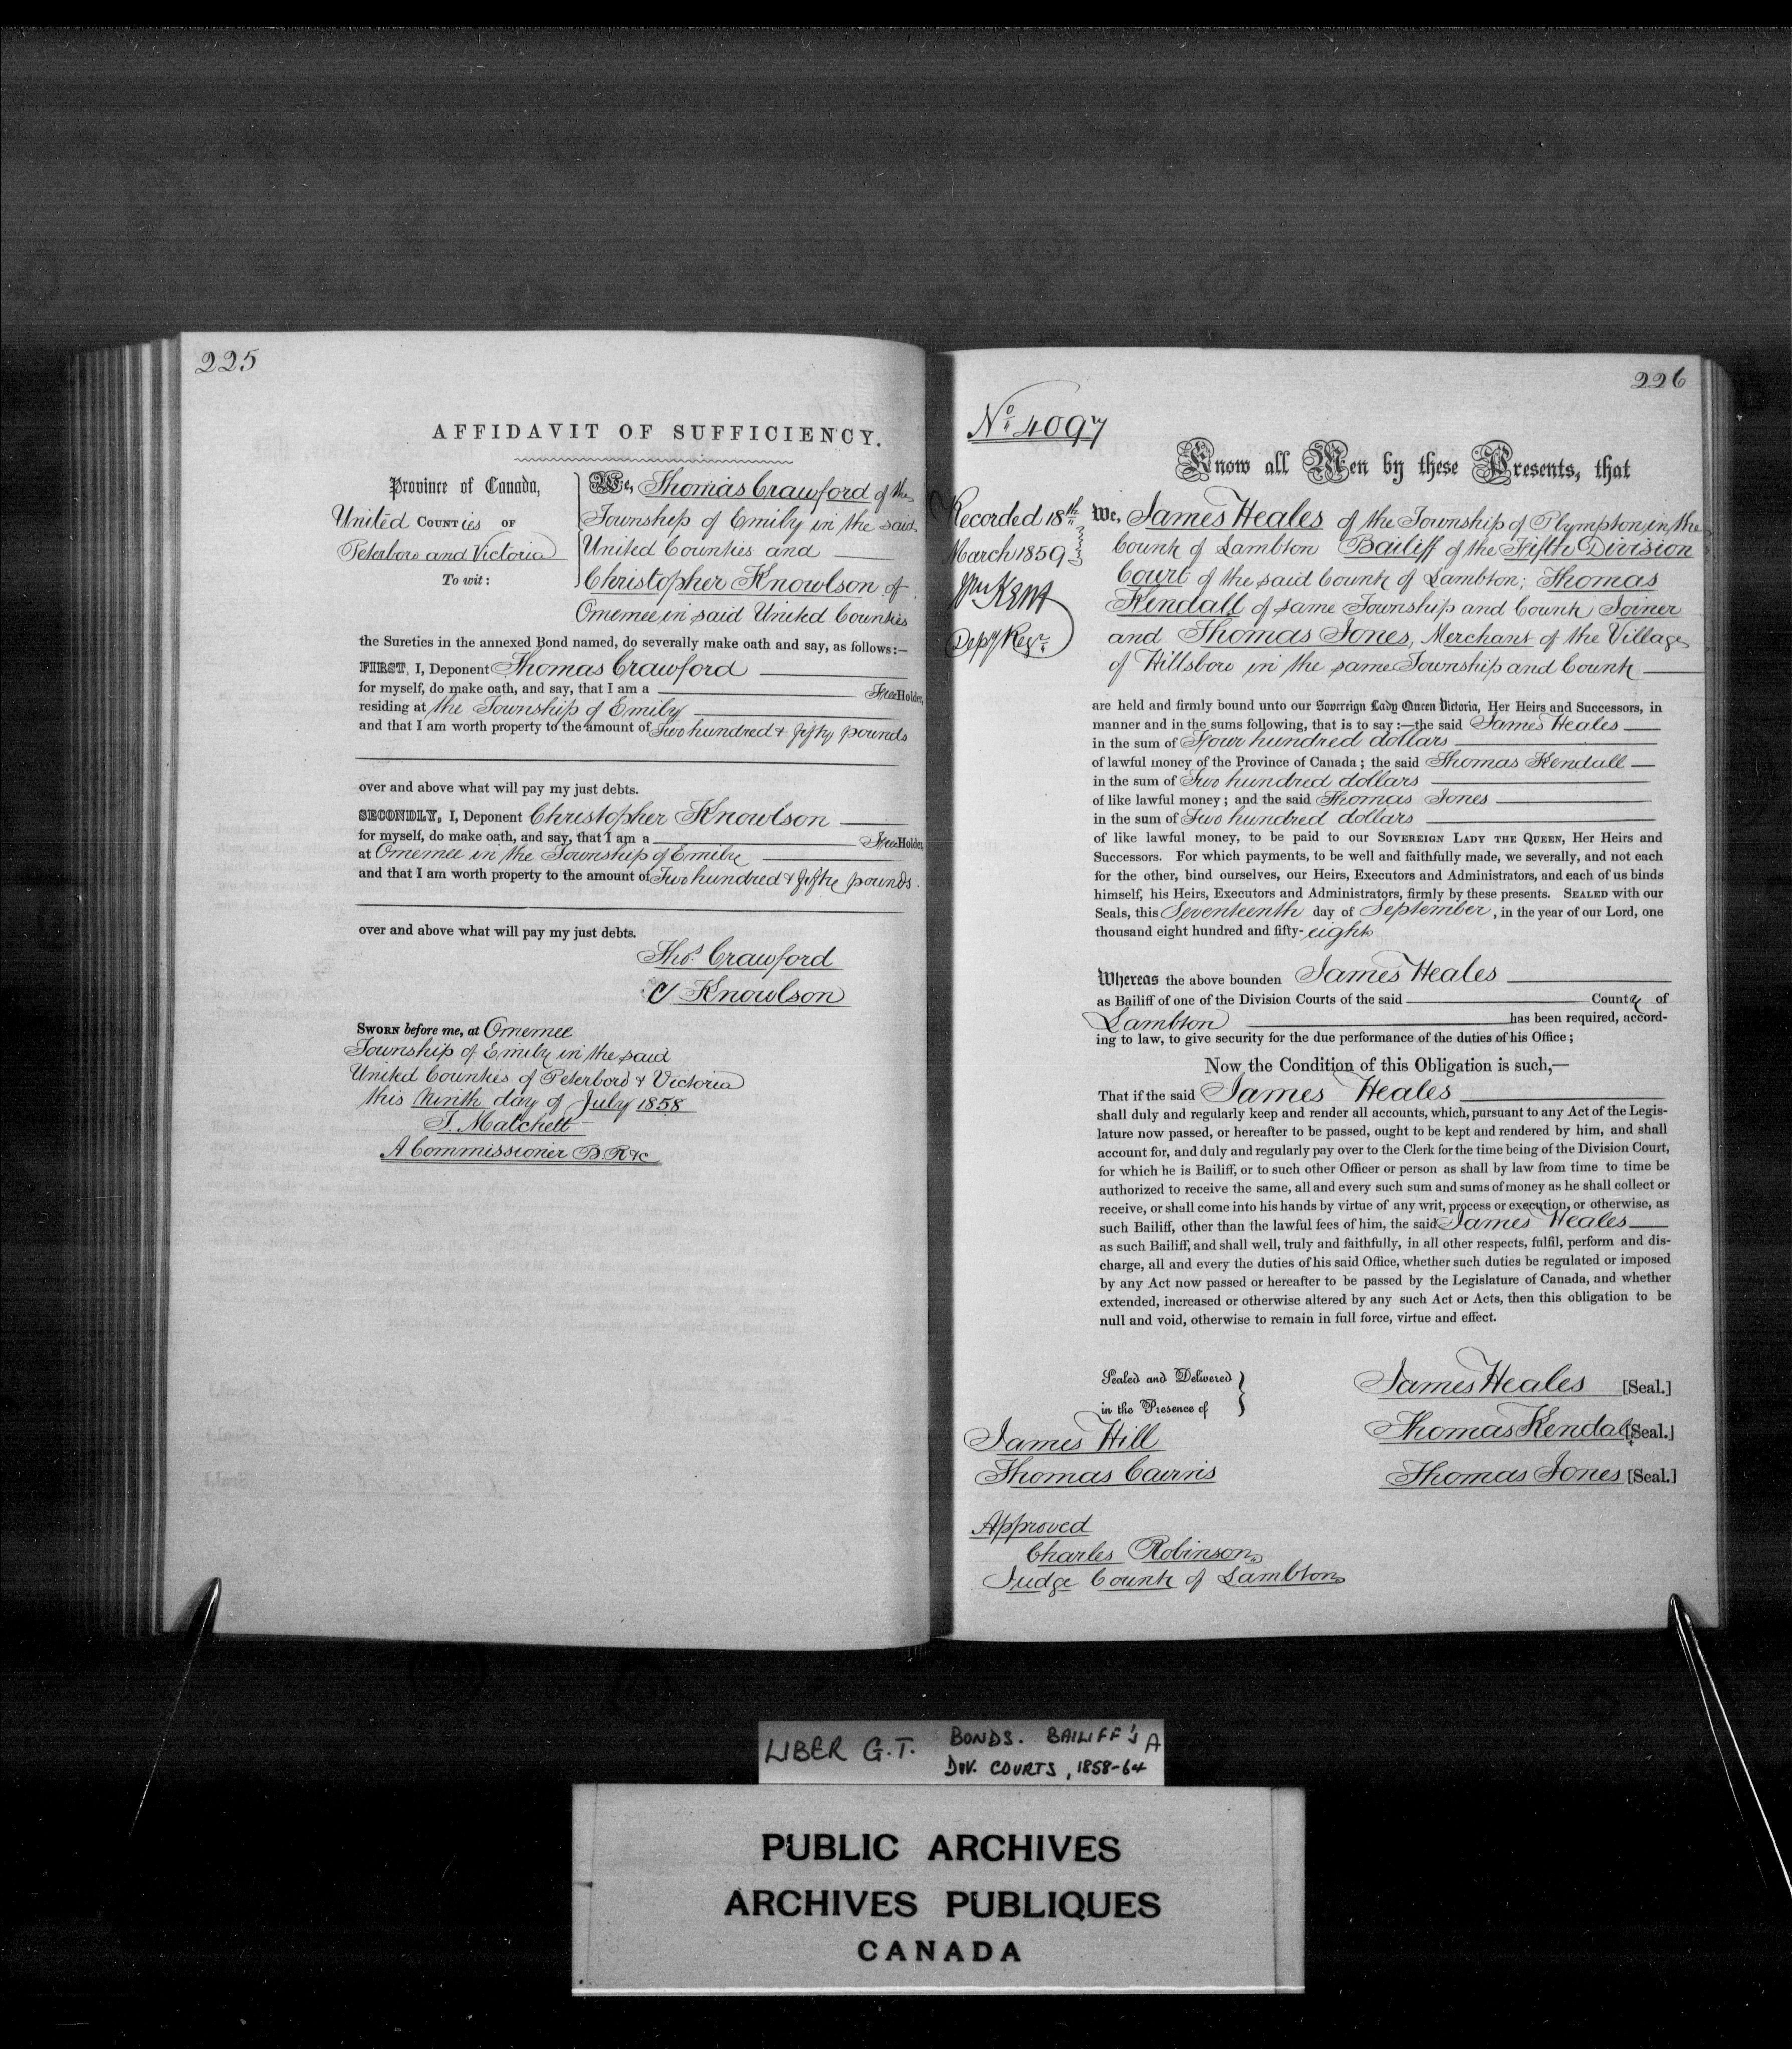 225
AFFIDAVIT OF SUFFICIENCY.
Province of Canada,
United COUNTies OF
Peterboro and Victoria
To wit:
We, Thomas Crawford of the
Township of Emily in the said
United Counties and
Christopher Knowlson of
Omemee in said United Counties
the Sureties in the annexed Bond named, do severally make oath and say, as follows:—
FIRST, I, Deponent Thomas Crawford
for myself, do make oath, and say, that I am a FreeHolder,
residing at the Township of Emily
and that I am worth property to the amount of Two hundred & fifty pounds
over and above what will pay my just debts.
SECONDLY, I, Deponent Christopher Knowlson
for myself, do make oath, and say, that I am a FreeHolder,
at Omemee in the Township of Emily
and that I am worth property to the amount of Two hundred & fifty pounds.
over and above what will pay my just debts.
Thos. Crawford
C Knowlson
SWORN before me, at Omemee
Township of Emily in the said
United Counties of Peterboro & Victoria
this Ninth day of July 1858
T. Matchett
A Commissioner B.R &c
226
No. 4097
Know all Men by these Presents, that
Recorded 18th
March 1859
Wm Kent
Depy Regr.
We, James Heales of the Township of Plympton in the
County of Lambton Bailiff of the Fifth Division
Court of the said County of Lambton; Thomas
Kendall of same Township and County Joiner
and Thomas Jones, Merchant of the Village
of Hillsboro in the same Township and County
are held and firmly bound unto our Sovereign Lady Queen Victoria, Her Heirs and Successors, in
manner and in the sums following, that is to say:—the said James Heales
in the sum of Four hundred dollars
of lawful money of the Province of Canada; the said Thomas Kendall
in the sum of Two hundred dollars
of like lawful money; and the said Thomas Jones
in the sum of Two hundred dollars
of like lawful money, to be paid to our SOVEREIGN LADY THE QUEEN, Her Heirs and
Successors. For which payments, to be well and faithfully made, we severally, and not each
for the other, bind ourselves, our Heirs, Executors and Administrators, and each of us binds
himself, his Heirs, Executors and Administrators, firmly by these presents. SEALED with our
Seals, this Seventeenth day of September, in the year of our Lord, one
thousand eight hundred and fifty-eight
Whereas the above bounden James Heales
as Bailiff of one of the Division Courts of the said County of
Lambton has been required, accord-
ing to law, to give security for the due performance of the duties of his Office;
Now the Condition of this Obligation is such,—
That if the said James Heales
shall duly and regularly keep and render all accounts, which, pursuant to any Act of the Legis-
lature now passed, or hereafter to be passed, ought to be kept and rendered by him, and shall
account for, and duly and regularly pay over to the Clerk for the time being of the Division Court,
for which he is Bailiff, or to such other Officer or person as shall by law from time to time be
authorized to receive the same, all and every such sum and sums of money as he shall collect or
receive, or shall come into his hands by virtue of any writ, process or execution, or otherwise, as
such Bailiff, other than the lawful fees of him, the said James Heales
as such Bailiff, and shall well, truly and faithfully, in all other respects, fulfil, perform and dis-
charge, all and every the duties of his said Office, whether such duties be regulated or imposed
by any Act now passed or hereafter to be passed by the Legislature of Canada, and whether
extended, increased or otherwise altered by any such Act or Acts, then this obligation to be
null and void, otherwise to remain in full force, virtue and effect.
Sealed and Delivered
in the Presence of
James Hill
Thomas Cairns
James Heales [Seal.]
Thomas Kendall [Seal.]
Thomas Jones [Seal.]
Approved
Charles Robinson
Judge County of Lambton
LIBER G.T. BONDS. BAILIFF'S A
DIV. COURTS, 1858-64
PUBLIC ARCHIVES
ARCHIVES PUBLIQUES
CANADA